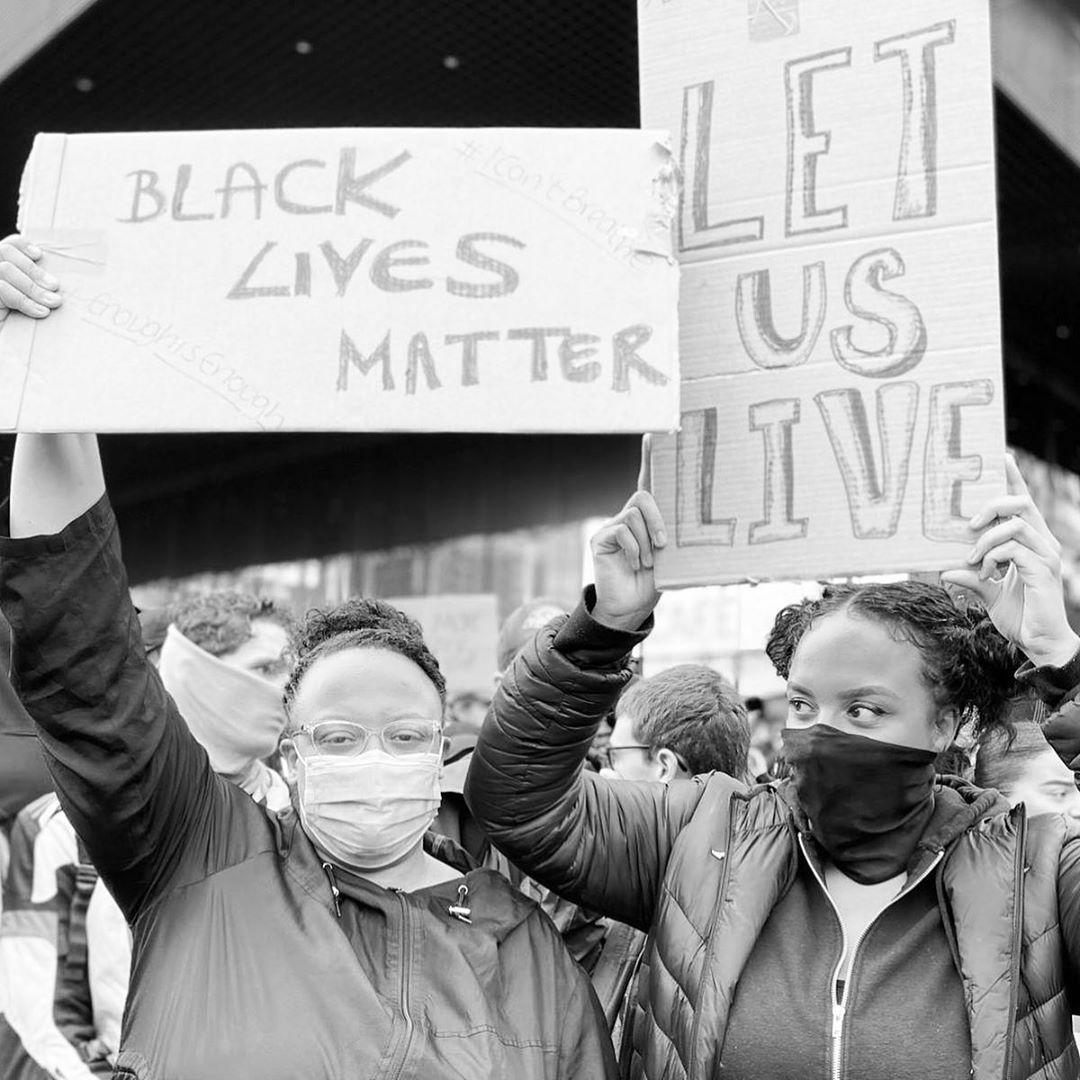 BLACK
LIVES
MATTER
#ICan'tBreathe
#EnoughIsEnough
LET
US
LIVE